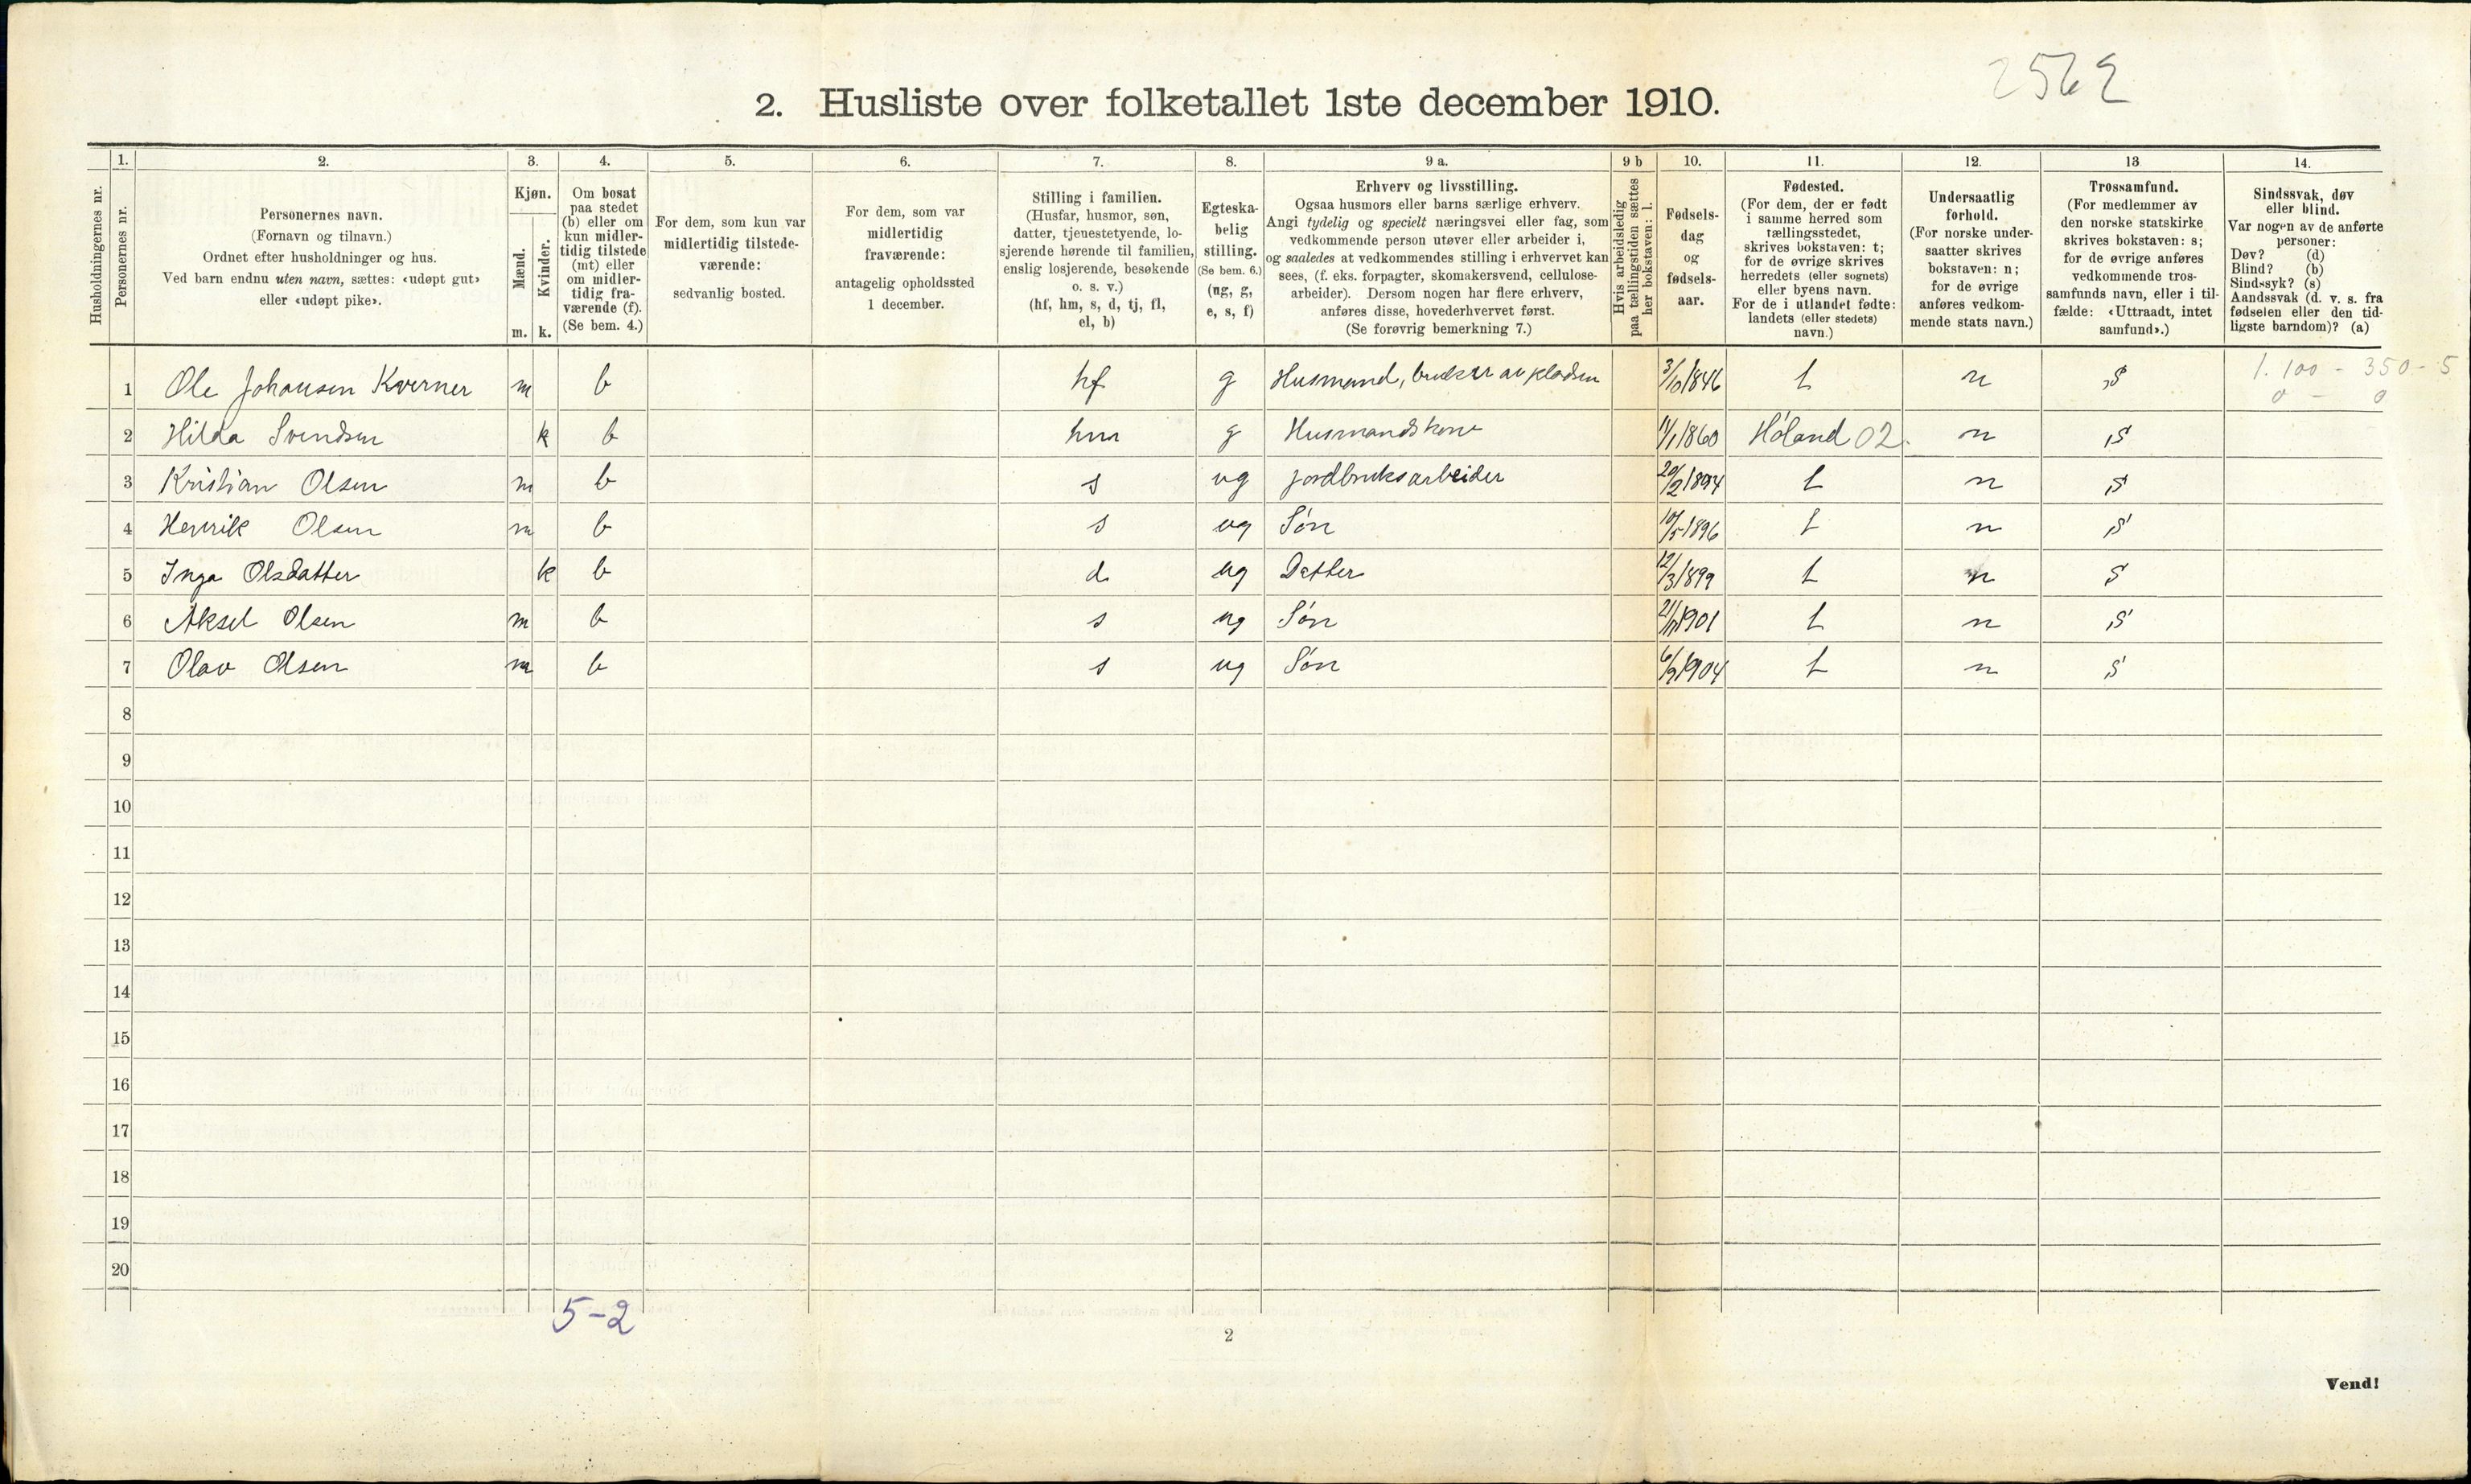 2562
2. Husliste over folketallet 1ste december 1910.
1. 2. 3. 4. 5. 6. 7. 8. 9 a. 9 b 10. 11. 12. 13 14.
Husholdningernes nr.
Personernes nr.
Personernes navn.
(Fornavn og tilnavn.)
Ordnet efter husholdninger og hus.
Ved barn endnu uten navn, sættes: «udøpt gut»
eller «udøpt pike».
Kjøn.
Mænd.
Kvinder.
m. k.
Om bosat
paa stedet
(b) eller om
kun midler-
tidig tilstede
(mt) eller
om midler-
tidig fra-
værende (f).
(Se bem. 4.)
For dem, som kun var
midlertidig tilstede-
værende:
sedvanlig bosted.
For dem, som var
midlertidig
fraværende:
antagelig opholdssted
1 december.
Stilling i familien.
(Husfar, husmor, søn,
datter, tjenestetyende, lo-
sjerende hørende til familien,
enslig losjerende, besøkende
o. s. v.)
(hf, hm, s, d, tj, fl,
el, b)
Egteska-
belig
stilling.
(Se bem. 6.)
(ug, g,
e, s, f)
Erhverv og livsstilling.
Ogsaa husmors eller barns særlige erhverv.
Angi tydelig og specielt næringsvei eller fag, som
vedkommende person utøver eller arbeider i,
og saaledes at vedkommendes stilling i erhvervet kan
sees, (f. eks. forpagter, skomakersvend, cellulose-
arbeider). Dersom nogen har flere erhverv,
anføres disse, hovederhvervet først.
(Se forøvrig bemerkning 7.)
Hvis arbeidsledig
paa tællingstiden sættes
her bokstaven: l.
Fødsels-
dag
og
fødsels-
aar.
Fødested.
(For dem, der er født
i samme herred som
tællingsstedet,
skrives bokstaven: t;
for de øvrige skrives
herredets (eller sognets)
eller byens navn.
For de i utlandet fødte:
landets (eller stedets)
navn.)
Undersaatlig
forhold.
(For norske under-
saatter skrives
bokstaven: n;
for de øvrige
anføres vedkom-
mende stats navn.)
Trossamfund.
(For medlemmer av
den norske statskirke
skrives bokstaven: s;
for de øvrige anføres
vedkommende tros-
samfunds navn, eller i til-
fælde: «Uttraadt, intet
samfund».)
Sindssvak, døv
eller blind.
Var nogen av de anførte
personer:
Døv? (d)
Blind? (b)
Sindssyk? (s)
Aandssvak (d. v. s. fra
fødselen eller den tid-
ligste barndom)? (a)
1 Ole Johansen Kverner m b hf g Husmand, bruker av pladsen 3/10 1846 t n s 1. 100 - 350 - 5
0 - 0
2 Hilda Svendsen k b hm g Husmandskone 11/1 1860 Høland 02. n s
3 Kristian Olsen m b s ug jordbruksarbeider 20/2 1894 t n s
4 Henrik Olsen m b s ug Søn 10/5 1896 t n s
5 Inga Olsdatter k b d ug Datter 12/3 1899 t n s
6 Aksel Olsen m b s ug Søn 21/11 1901 t n s
7 Olav Olsen m b s ug Søn 1904 t n s
8
9
10
11
12
13
14
15
16
17
18
19
20
5-2
2
Vend!